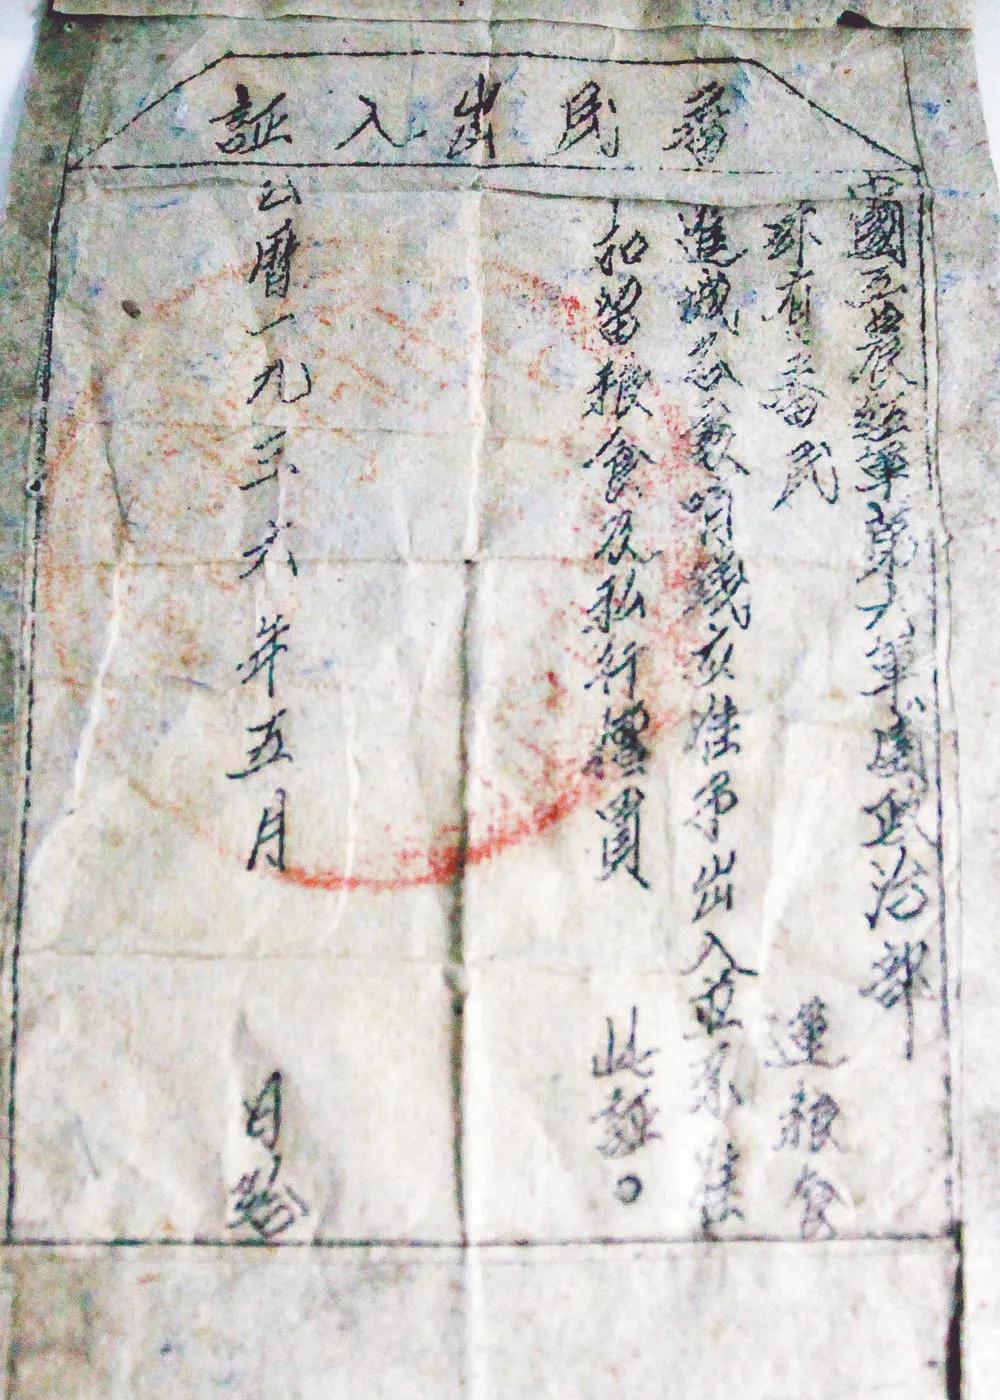 番民出入証
中國工農紅軍第六軍團政治部
有番民 運粮食
進城公家錢准予出入並不准
扣留粮食及私行價買 此証。
公曆一九三六年五月 日給